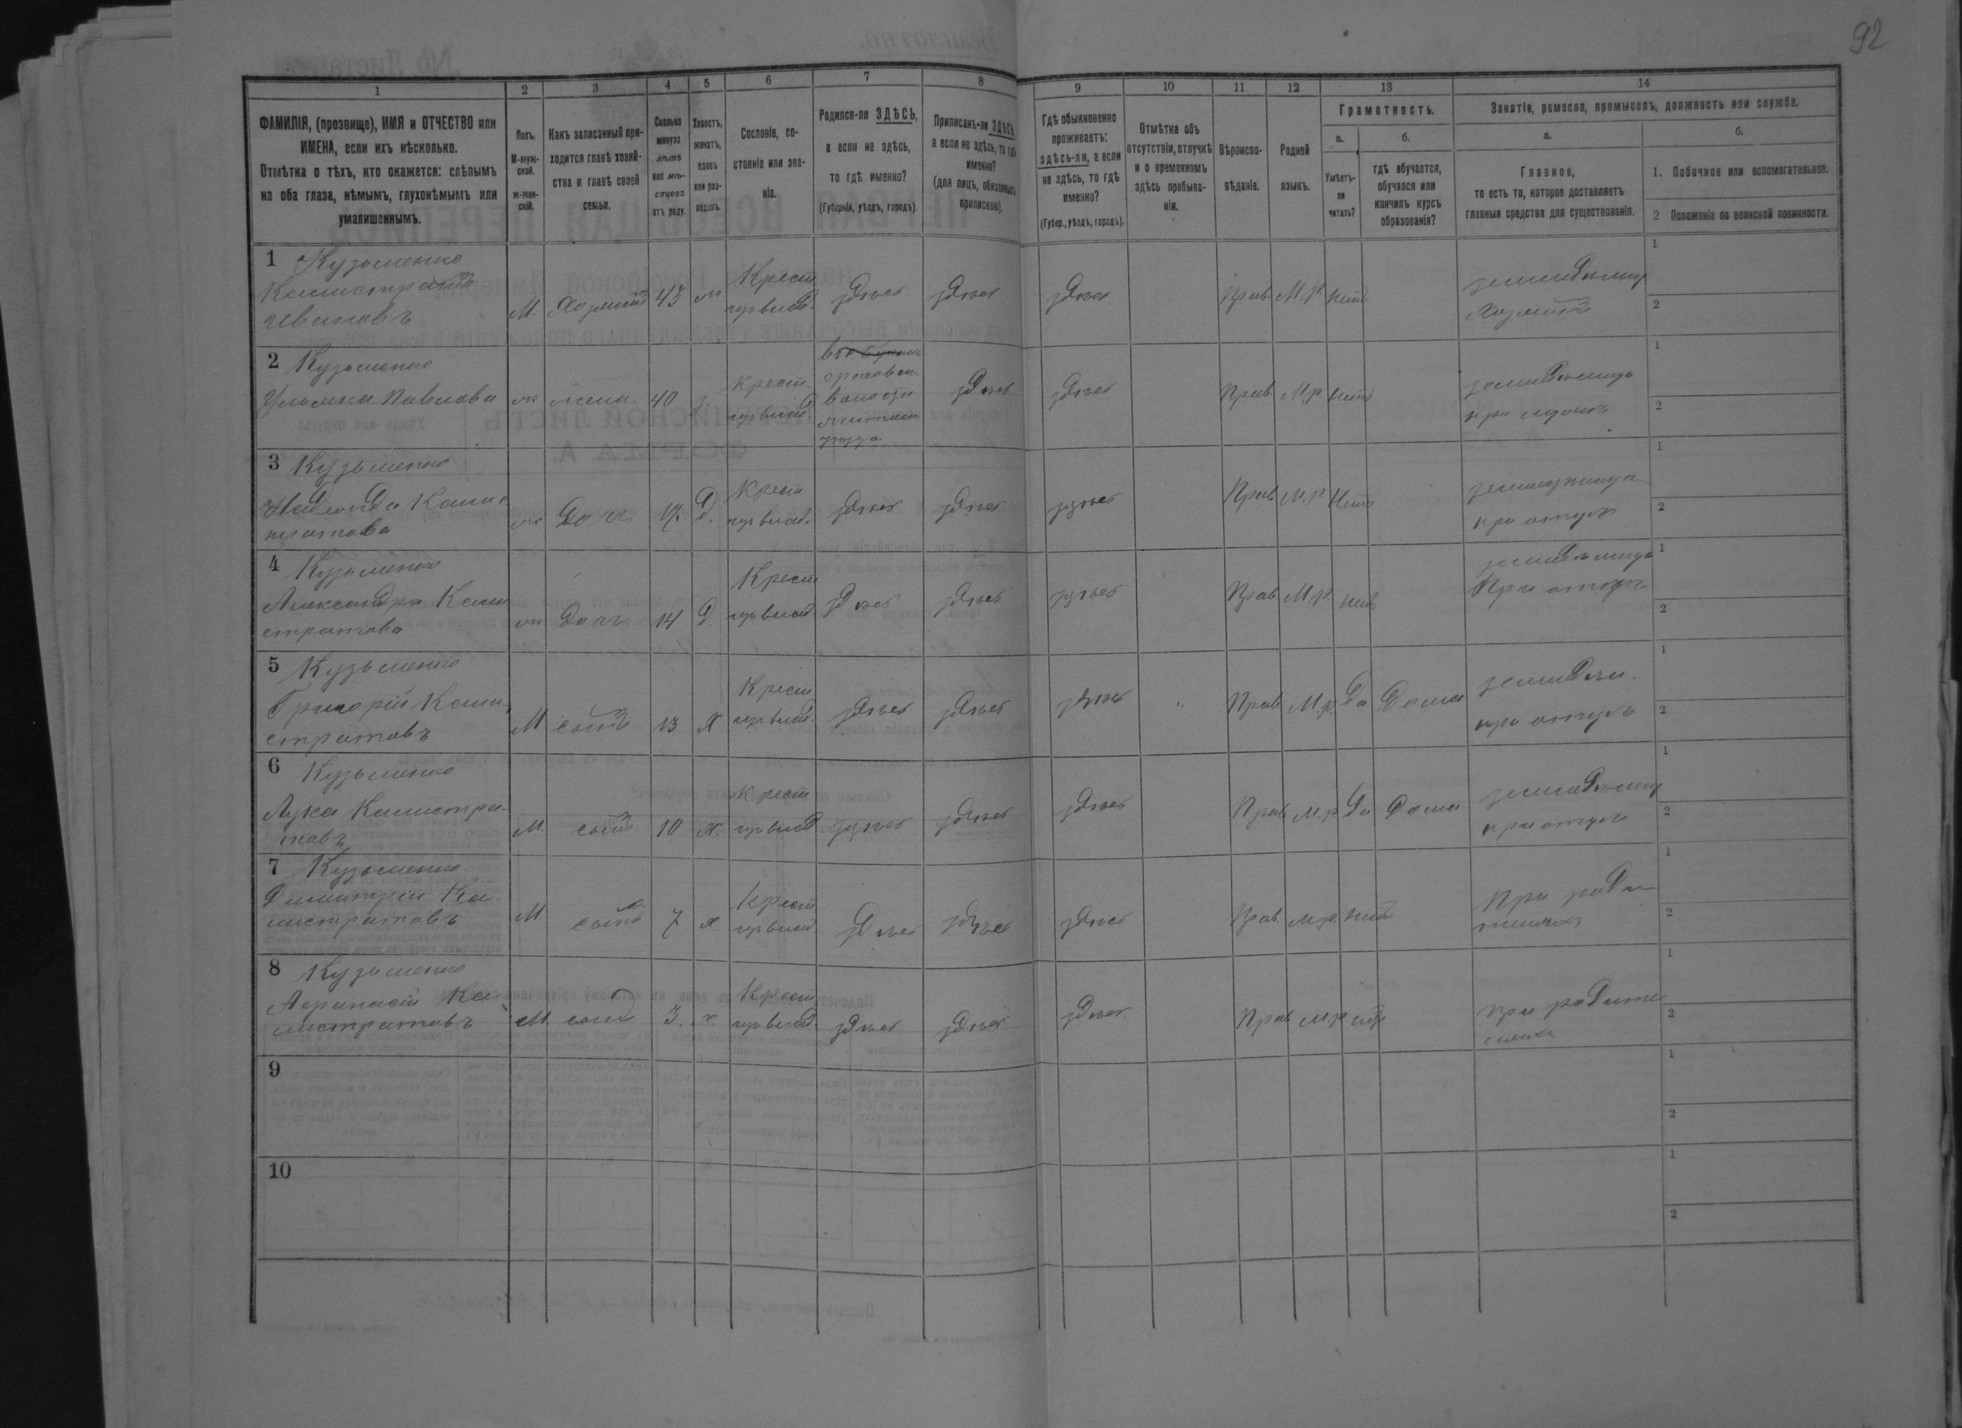 92
1 2 3 4 5 6 7 8 9 10 11 12 13 14
ФАМИЛІЯ, (прозвище), ИМЯ и ОТЧЕСТВО или
ИМЕНА, если ихъ нѣсколько.
Отмѣтка о тѣхъ, кто окажется: слѣпымъ
на оба глаза, нѣмымъ, глухонѣмымъ или
умалишеннымъ.
Полъ.
М-муж-
ской.
ж-жен-
скій.
Какъ записанный при-
ходится главѣ хозяй-
ства и главѣ своей
семьи.
Сколько
минуло
лѣтъ
или мѣ-
сяцевъ
отъ роду.
Холостъ,
женатъ,
вдовъ
или раз-
веденъ.
Сословіе, со-
стояніе или зва-
ніе.
Родился-ли ЗДѢСЬ,
а если не здѣсь,
то гдѣ именно?
(Губернія, уѣздъ, городъ).
Приписанъ-ли ЗДѢСЬ,
а если не здѣсь, то гдѣ
именно?
(для лицъ, обязанныхъ
припискою).
Гдѣ обыкновенно
проживаетъ:
здѣсь-ли, а если
не здѣсь, то гдѣ
именно?
(Губер., уѣздъ, городъ).
Отмѣтка объ
отсутствіи, отлучкѣ
и о временномъ
здѣсь пребыва-
ніи.
Вѣроиспо-
вѣданіе.
Родной
языкъ.
Грамотность.
а.
Умѣетъ-
ли
читать?
б.
гдѣ обучается,
обучался или
кончилъ курсъ
образованія?
Занятія, ремесло, промыселъ, должность или служба.
а.
Главное,
то есть то, которое доставляетъ
главныя средства для существованія.
б.
1. Побочное или вспомогательное.
2 Положеніе по воинской повинности.
1 Кузьменко
Калистратъ
Ивановъ
М. Хозяинъ 43 ж Крест. гос. влад. здѣсь здѣсь здѣсь Прав. М.р. нѣтъ
Хозяинъ
1
2
2 Кузьменко
Ульяна Павлова
ж жена 40 з. Крест.
волости
здѣсь здѣсь Прав. М.р. нѣтъ
1
2
3 Кузьменко
Надежда Кали-
стратова
ж дочь 17. Д. Крест здѣсь здѣсь здѣсь Прав. М.р. Нѣтъ
при отцѣ
1
2
4 Кузьменко
Александра Кали
стратова
ж дочь 14 Д. Крест здѣсь здѣсь здѣсь Прав. М.р. нѣтъ
При отцѣ
1
2
5 Кузьменко
Григорій Кали-
стратовъ
М сынъ 13 Х Крест здѣсь здѣсь здѣсь Прав. М.р. Да Дома
при отцѣ
1
2
6 Кузьменко
Лука Калистра-
товъ
М. сынъ 10 х. Крест здѣсь здѣсь здѣсь Прав. М.р. Да Дома
при отцѣ
1
2
7 Кузьменко
Димитрій Ка-
листратовъ
М сынъ 7 х Крест здѣсь здѣсь здѣсь Прав. М.р. нѣтъ
При роди-
теляхъ
1
2
8 Кузьменко
Афанасій Ка-
листратовъ
М. сынъ 3. х. Крест. здѣсь здѣсь здѣсь Прав. М.р. нѣтъ
при родите
ляхъ
1
2
9
1
2
10
1
2